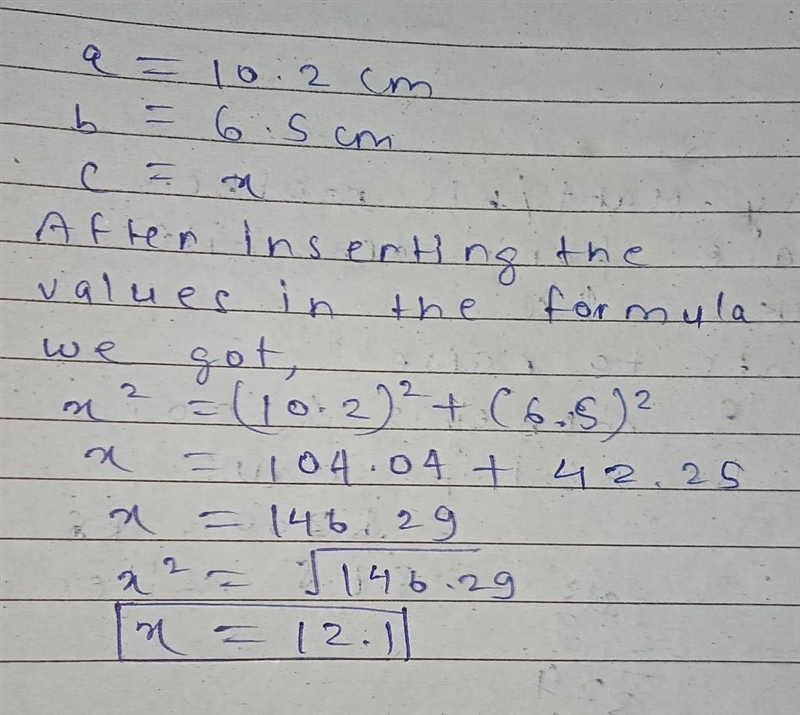 a = 10.2 cm
b = 6.5 cm
c = x
After inserting the
values in the formula
we got,
x² = (10.2)² + (6.5)²
x = 104.04 + 42.25
x = 146.29
x² = √146.29
x = 12.1